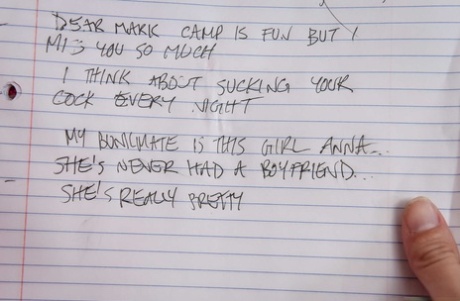 DEAR MARK CAMP IS FUN BUT I
MISS YOU SO MUCH
I THINK ABOUT SUCKING YOUR
COCK EVERY NIGHT
MY BUNKMATE IS THIS GIRL ANNA...
SHE'S NEVER HAD A BOYFRIEND...
SHE'S REALLY PRETTY